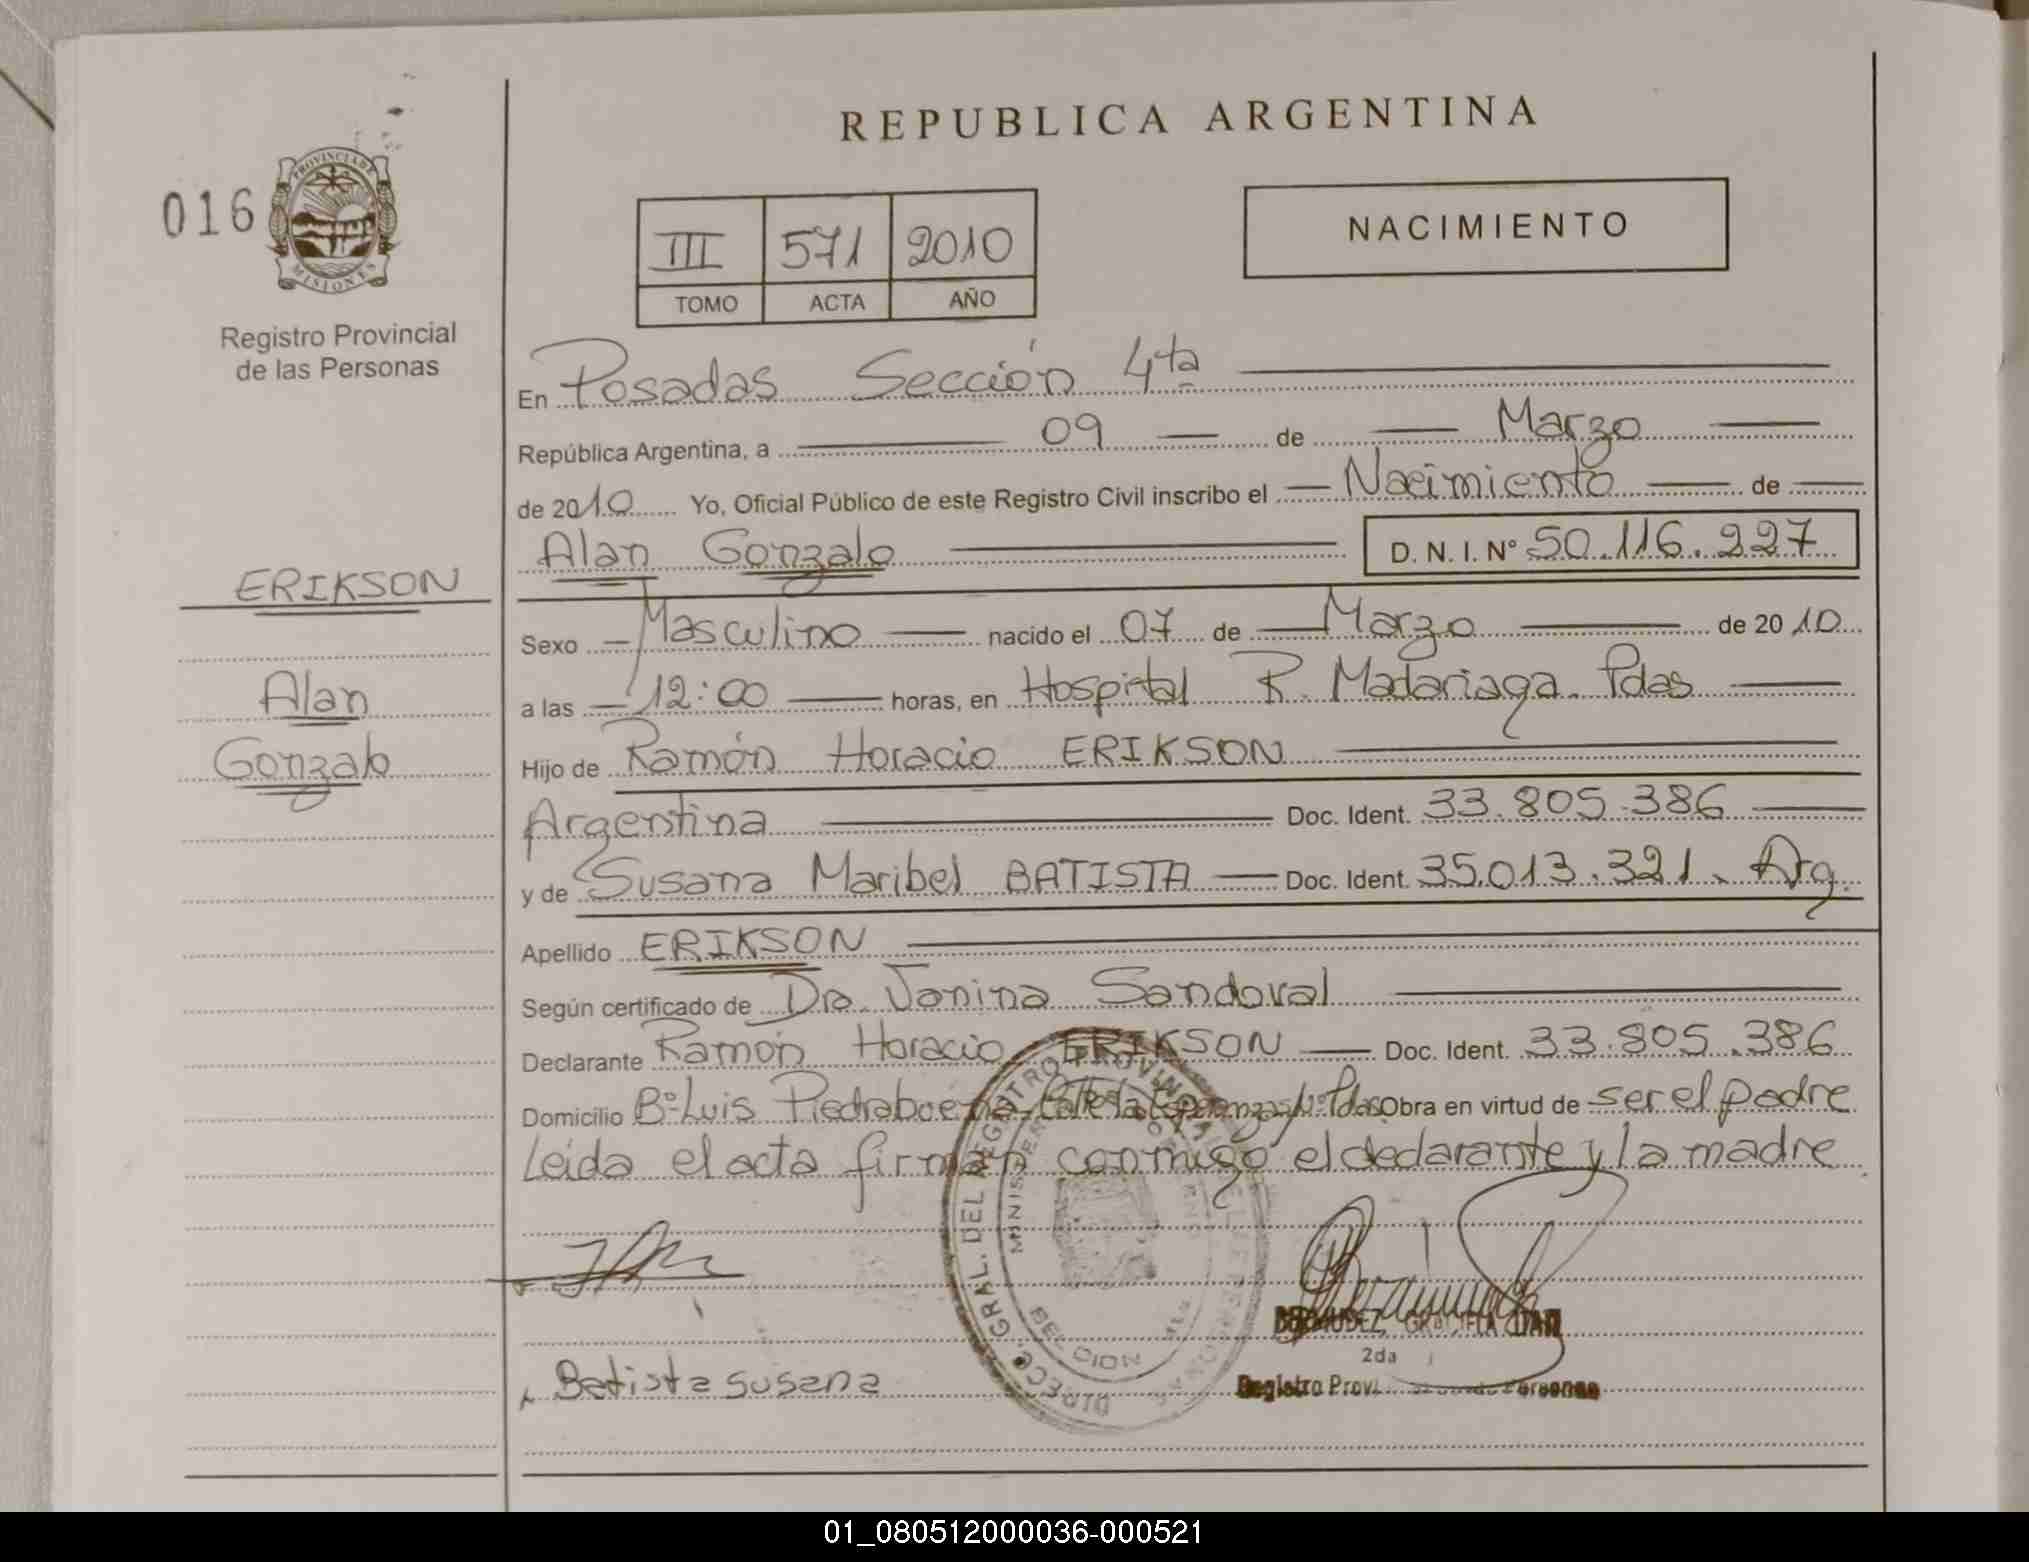 REPUBLICA ARGENTINA
016
PROVINCIA DE
MISIONES
Registro Provincial
de las Personas
III 571 2010
TOMO ACTA AÑO
NACIMIENTO
En Posadas Sección 4ta
República Argentina, a 09 de Marzo
de 2010 Yo, Oficial Público de este Registro Civil inscribo el Nacimiento de
Alan Gonzalo D. N. I. Nº 50.116.227
ERIKSON
Alan
Gonzalo
Sexo Masculino nacido el 07 de Marzo de 2010
a las 12:00 horas, en Hospital R. Madariaga. Pdas
Hijo de Ramón Horacio ERIKSON
Argentina Doc. Ident. 33.805.386
y de Susana Maribel BATISTA Doc. Ident. 35.013.321. Arg.
Apellido ERIKSON
Según certificado de Dra. Janina Sandoval
Declarante Ramón Horacio ERIKSON Doc. Ident. 33.805.386
Domicilio Bº Luis Piedrabuena Obra en virtud de ser el padre
Leída el acta firman conmigo el declarante y la madre
DIRECC. GRAL. DEL REGISTRO PROVINCIAL DE LAS PERSONAS
BERMUDEZ, GRACIELA
2da
Registro Prov. Personas
Batista susana
01_080512000036-000521